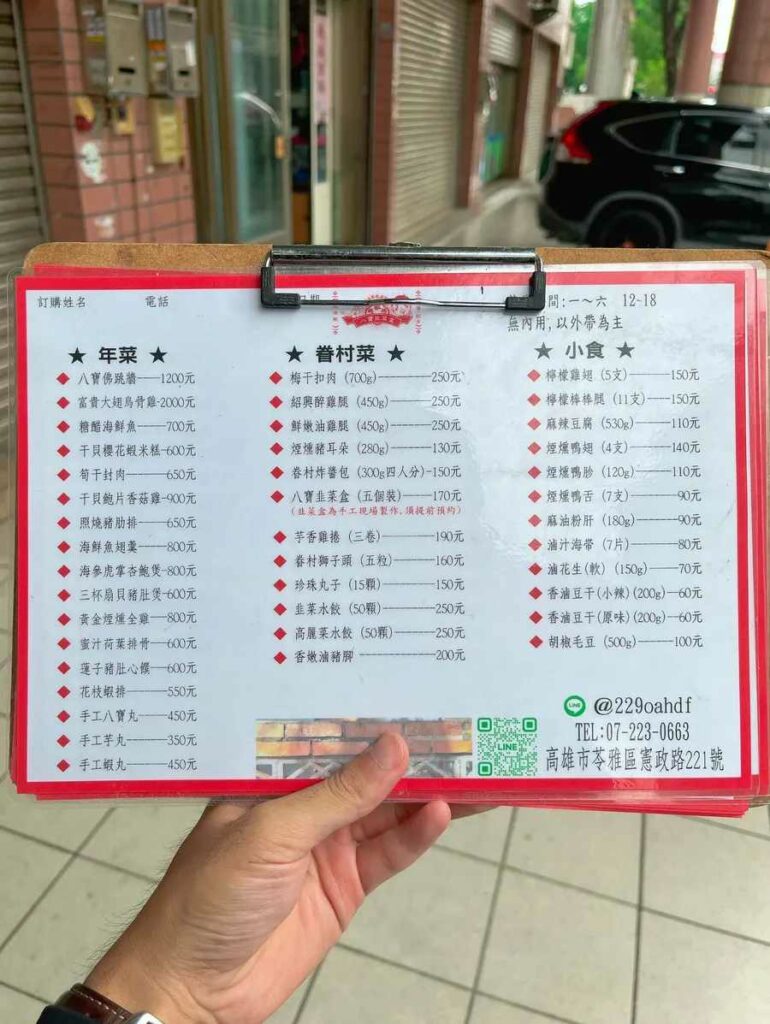 訂購姓名 電話 日期
間:一～六 12-18
無內用,以外帶為主
★ 年菜 ★
◆ 八寶佛跳牆——1200元
◆ 富貴大翅烏骨雞-2000元
◆ 糖醋海鮮魚——700元
◆ 干貝櫻花蝦米糕-600元
◆ 筍干封肉——650元
◆ 干貝鮑片香菇雞-900元
◆ 照燒豬肋排——650元
◆ 海鮮魚翅羹——800元
◆ 海參虎掌杏鮑煲-800元
◆ 三杯扇貝豬肚煲-600元
◆ 黃金煙燻全雞—800元
◆ 蜜汁荷葉排骨—600元
◆ 蓮子豬肚心饌—600元
◆ 花枝蝦排——550元
◆ 手工八寶丸——450元
◆ 手工芋丸——350元
◆ 手工蝦丸——450元
★ 眷村菜 ★
◆ 梅干扣肉 (700g)——250元
◆ 紹興醉雞腿 (450g)——250元
◆ 鮮嫩油雞腿 (450g)——250元
◆ 煙燻豬耳朵 (280g)——130元
◆ 眷村炸醬包 (300g四人分)-150元
◆ 八寶韭菜盒 (五個裝)——170元
(韭菜盒為手工現場製作,須提前預約)
◆ 芋香雞捲 (三卷)——190元
◆ 眷村獅子頭 (五粒)——160元
◆ 珍珠丸子 (15顆)——150元
◆ 韭菜水餃 (50顆)——250元
◆ 高麗菜水餃 (50顆)——250元
◆ 香嫩滷豬腳——200元
★ 小食 ★
◆ 檸檬雞翅 (5支)——150元
◆ 檸檬棒棒腿 (11支)——150元
◆ 麻辣豆腐 (530g)——110元
◆ 煙燻鴨翅 (4支)——140元
◆ 煙燻鴨胗 (120g)——110元
◆ 煙燻鴨舌 (7支)——90元
◆ 麻油粉肝 (180g)——90元
◆ 滷汁海帶 (7片)——80元
◆ 滷花生(軟) (150g)——70元
◆ 香滷豆干(小辣) (200g)—60元
◆ 香滷豆干(原味) (200g)—60元
◆ 胡椒毛豆 (500g)——100元
LINE @229oahdf
LINE
TEL:07-223-0663
高雄市苓雅區憲政路221號